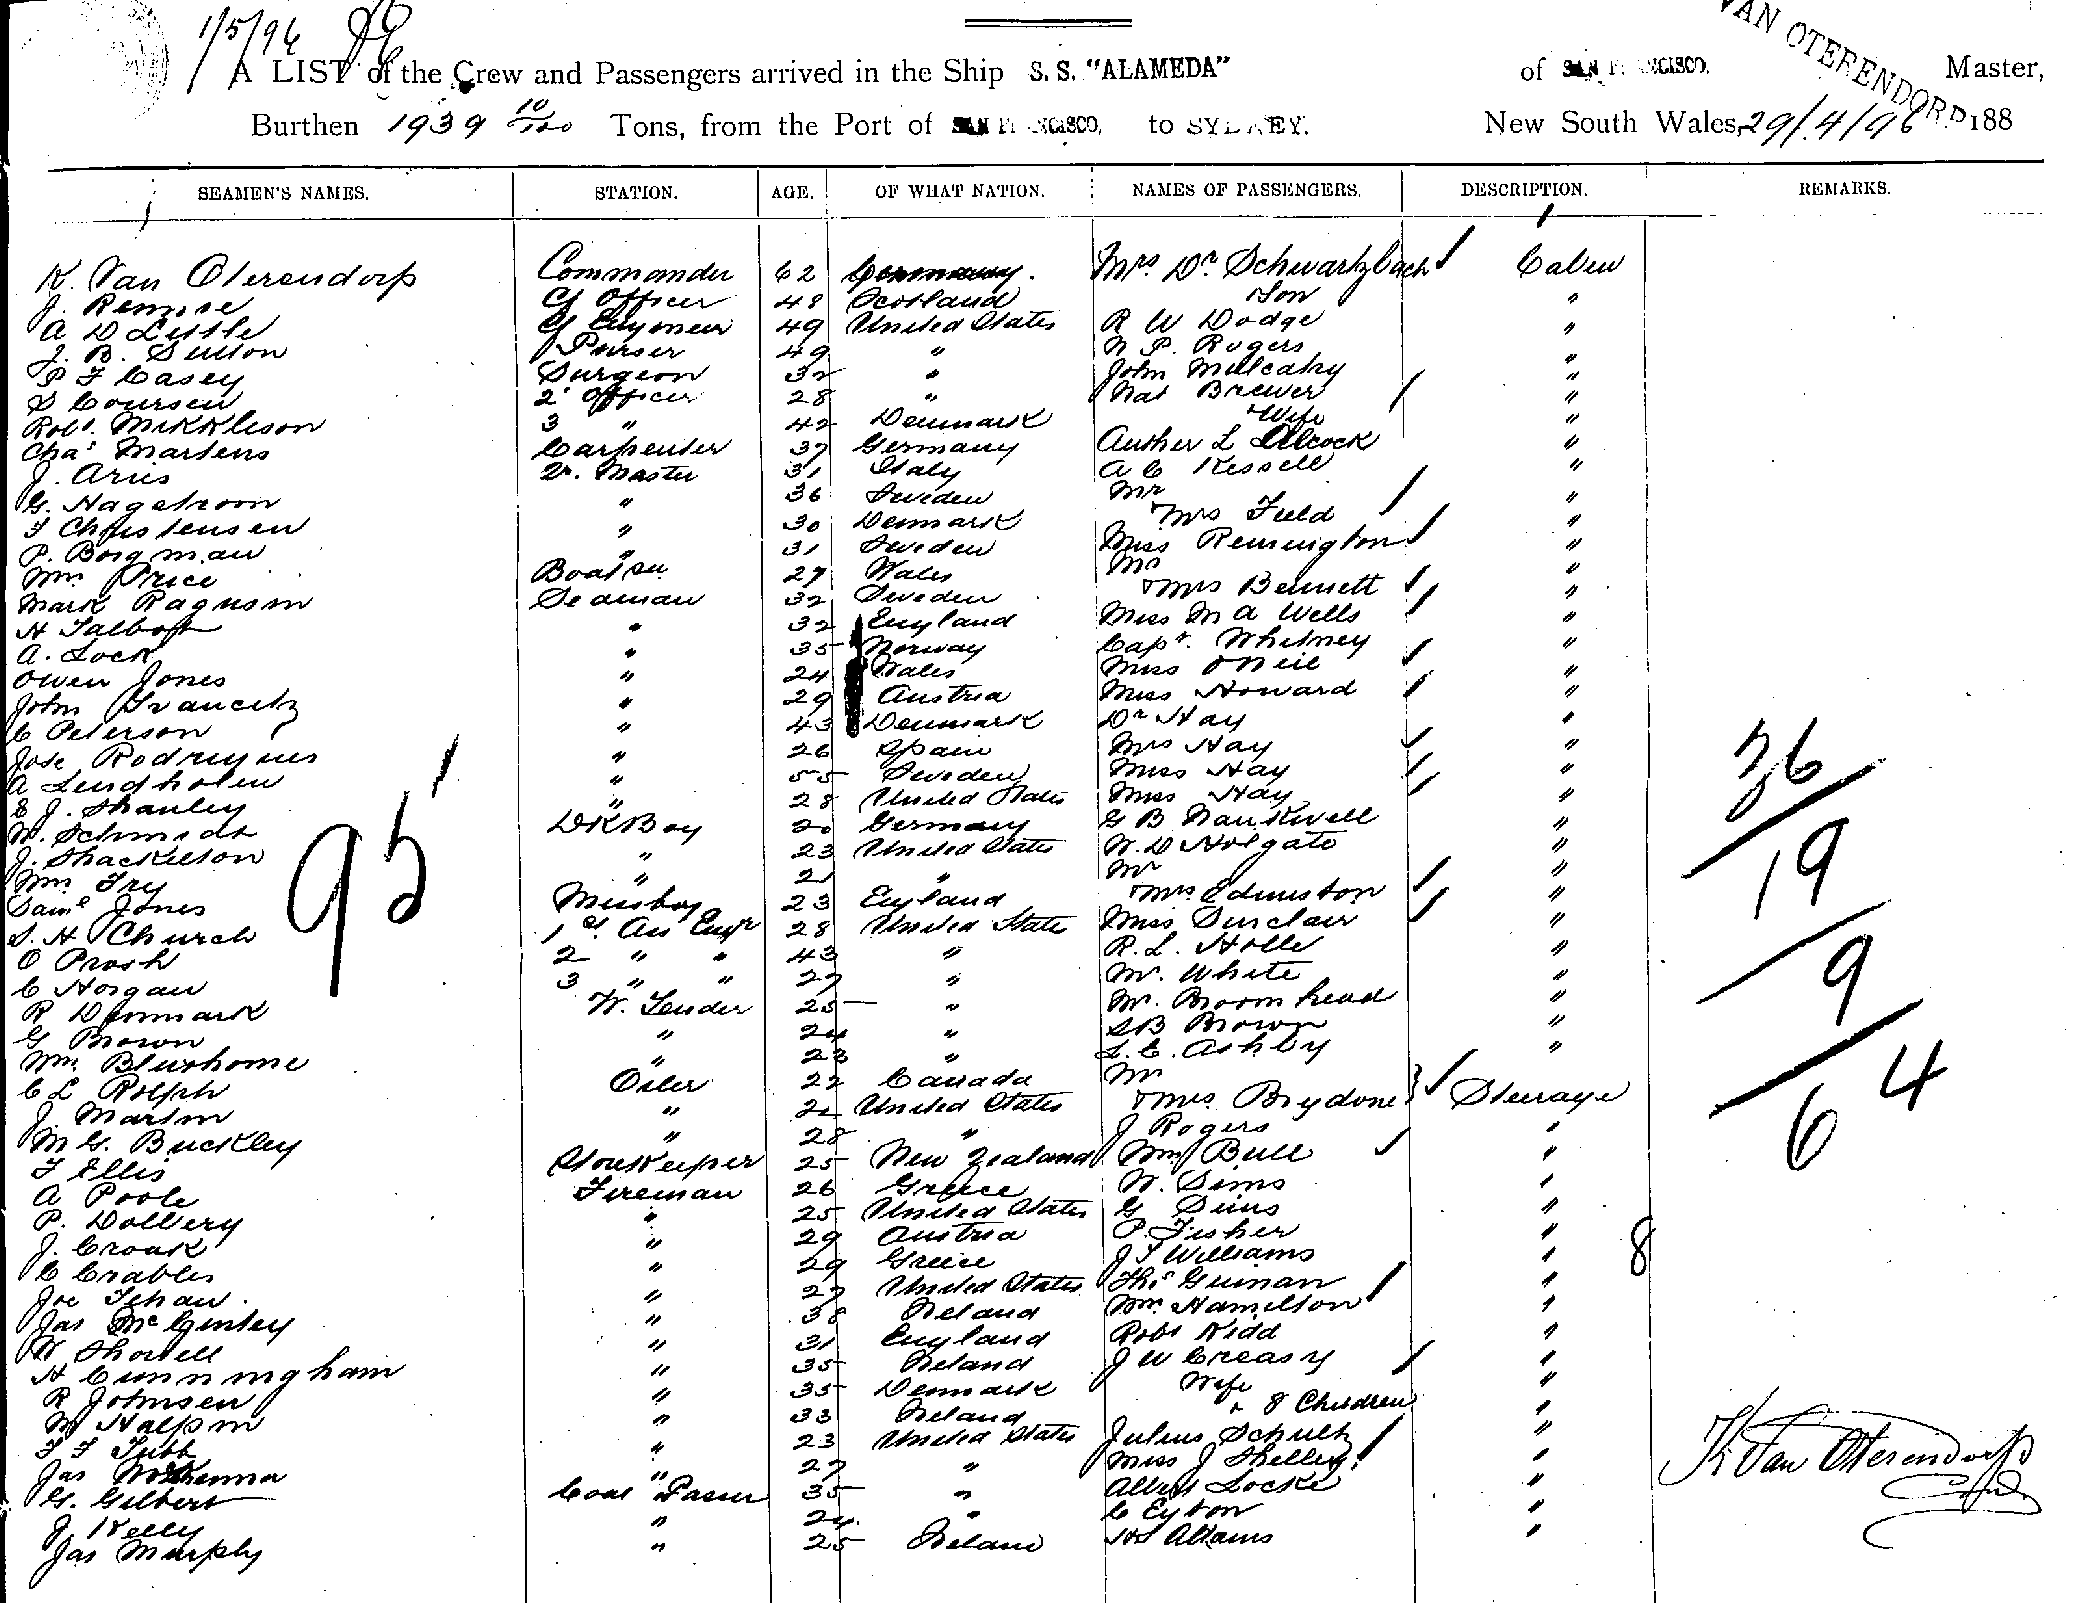 1/5/96
VAN OTERENDORP
A LIST of the Crew and Passengers arrived in the Ship S. S. "ALAMEDA" of SAN FRANCISCO. Master,
Burthen 1939 10/100 Tons, from the Port of SAN FRANCISCO, to SYDNEY. New South Wales, 29/4/96 188
SEAMEN'S NAMES. STATION. AGE. OF WHAT NATION. NAMES OF PASSENGERS. DESCRIPTION. REMARKS.
K. Van Oterendorp Commander 62 Germany. Mrs Dr Schwartzbach Cabin
J. Rennie Cf Officer 48 Scotland Son "
A D Little Cf Engineer 49 United States R W Dodge "
J. B. Sutton Purser 49 " N P. Rogers
P F Casey Surgeon 32 " John Mulcahy "
S Coursen 2 Officer 28 " Nat Brewer "
Robt. Mikkleson 3 " 42 Denmark Wife "
Chas Martens Carpenter 37 Germany Author L Alcock "
J. Aries Qr. Master 31 Italy A C Kessell "
G. Hagstroom " 36 Sweden Mr
F Christensen " 30 Denmark Mrs Field "
P. Borgman " 31 Sweden Miss Remington "
Wm Price Boatsn 27 Wales Mr
Mark Ragnusm Seaman 32 Sweden & Mrs Bennett "
H Talbot " 32 England Miss M A Wells "
A. Lock " 35 Norway Capt. Whitney "
Owen Jones " 24 Wales Miss O'Neil "
John Francetz " 29 Austria Miss Howard "
C Peterson " 43 Denmark Dr Hay "
Jose Rodrigues " 26 Spain Mrs Hay "
A Lindholm " 55 Sweden Miss Hay "
E J. Shanley " 28 United States Miss Hay "
W. Schmidt DK Boy 20 Germany G B Nankivell "
J. Shackelton " 23 United States W. D Holgate "
Wm Fry " 21 " Mr
Saml Jones Messboy 23 England & Mrs Edmiston "
S. H Church 1st. Ass Engr 28 United States Miss Sinclair "
O Prosh 2 " " 43 " R. L. Holle "
C Horgan 3 " " 27 " Mr. White "
R Denmark W. Tender 25 " Mr. Broomhead "
G Brown " 24 " S B Brown "
Wm Bluxhome " 23 " L. C. Ashby "
C L Rolph Oiler 22 Canada Mr
J. Martin " United States & Mrs Brydone Steerage
M G. Buckley " 28 " J Rogers "
F Ellis Storekeeper 25 New Zealand Wm Bull "
A Poole Fireman 26 Greece W. Sims "
P. Dollery " 25 United States G Sims "
J. Croak " 29 Austria P. Fisher "
C Crables " 29 Greece J T Williams "
Joe Tehan. " 27 United States Ths Guinan "
Jas McGinley " 38 Ireland Wm. Hamilton "
W Showell " 31 England Robt Kidd "
H Cunningham " 35 Ireland J W Creasy "
R Johnsen " 35 Denmark Wife "
W Halpin " 33 Ireland + 8 Children "
F F Tubb " 23 United States Julius Schultz "
Jas " 27 " Miss J Shelley "
G. Gilbert Coal Passer 35 " Albert Locke "
J Kelly " 24 " C Eyton "
Jas Murphy " 25 Ireland Adams "
95
36
19
9
6 4
8
K Van Oterendorp